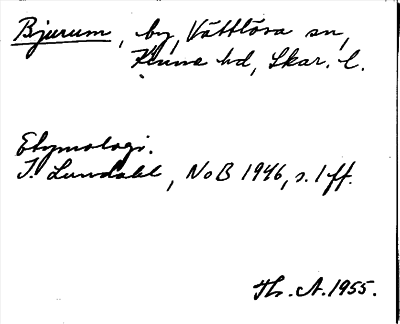 Bjurum, by, Vättlösa sn,
Kinne hd, Skar. l.
Etymologi.
I. Lundahl, NoB 1946, s. 1 ff.
Th. A. 1955.